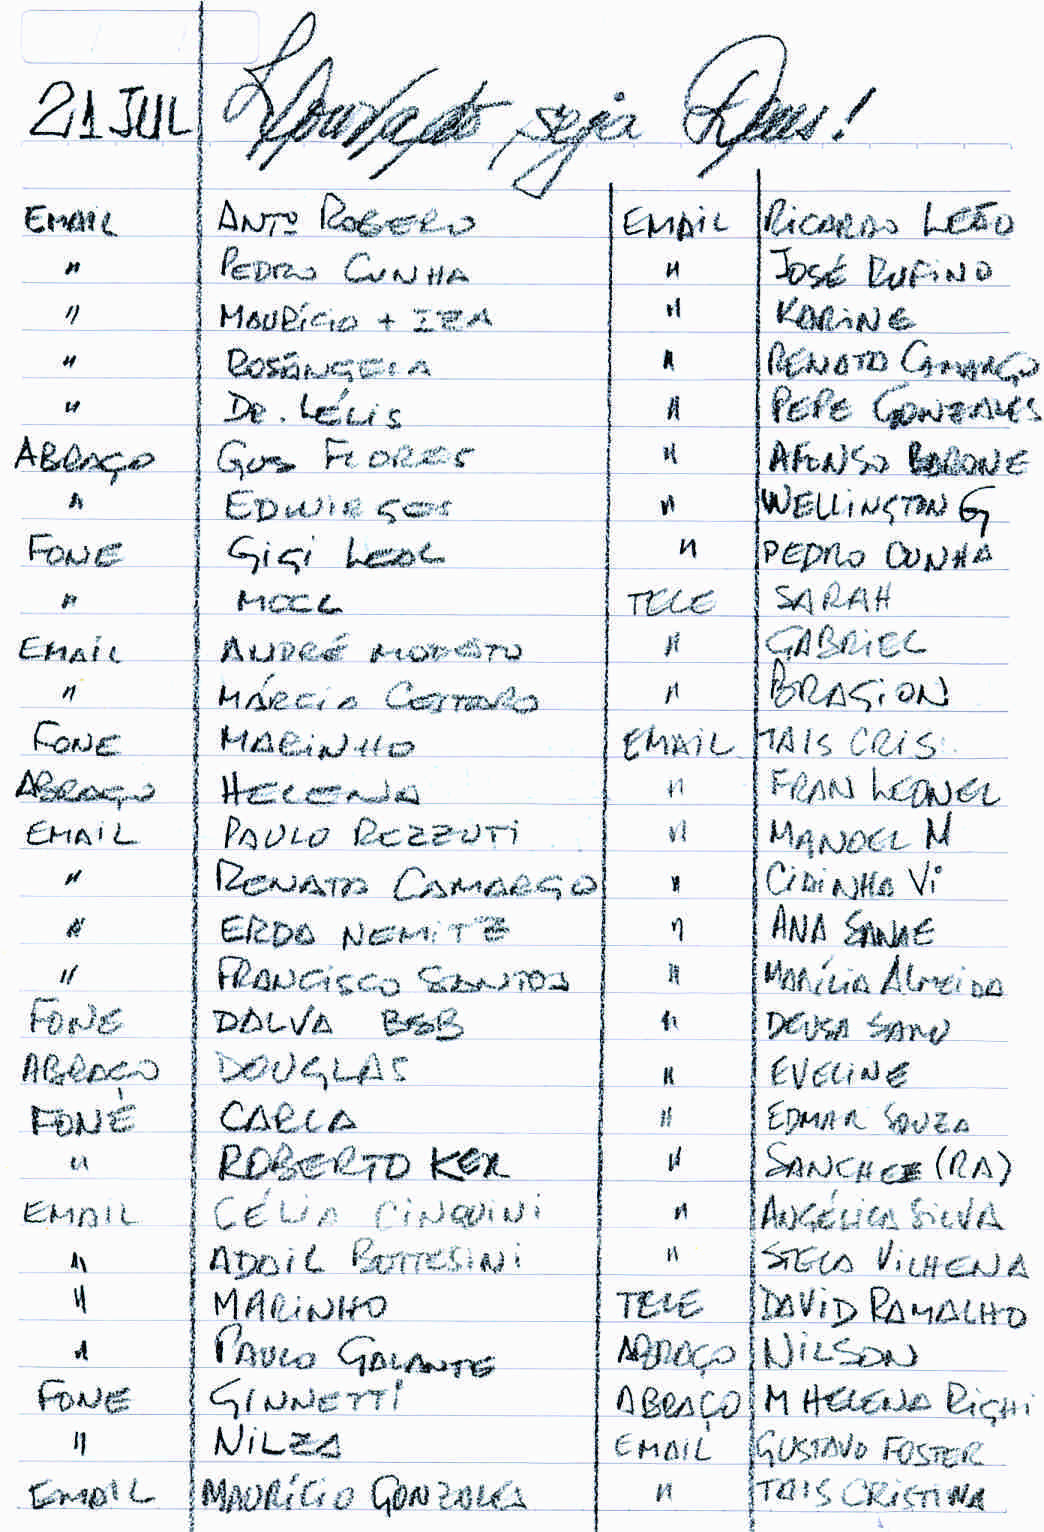 21 JUL Louvado seja Deus!
EMAIL ANTº ROBERO EMAIL RICARDO LEÃO
" PEDRO CUNHA " JOSÉ RUFINO
" MAURÍCIO + IZA " KARINE
" ROSÂNGELA " RENATO CAMARGO
" DR. LÉLIS " PEPE GONZALES
ABRAÇO GUS FLORES " AFONSO BORONE
" EDWIRGES " WELLINGTON G
FONE GIGI LEAL " PEDRO CUNHA
" MOCL TELE SARAH
EMAIL ANDRÉ MODESTO " GABRIEL
" MÁRCIO COSTARO " BRAGION
FONE MARINHO EMAIL TAIS CRIS
ABRAÇO HELENA " FRAN LEONEL
EMAIL PAULO REZZUTI " MANOEL M
" RENATO CAMARGO " CIDINHA Vi
" ERDA NEMITZ " ANA SANAE
" FRANCISCO SANTOS " MARÍLIA ALMEIDA
FONE DALVA BSB " DEUSA SAMU
ABRAÇO DOUGLAS " EVELINE
FONE CARLA " EDMAR SOUZA
" ROBERTO KER " SANCHEZ (RA)
EMAIL CÉLIA CINQUINI " ANGÉLICA SILVA
" ADAIL BOTTESINI " STELA VILHENA
" MARINHO TELE DAVID RAMALHO
" PAULO GALANTE ABRAÇO NILSON
FONE GINNETTI ABRAÇO M HELENA RIGHI
" NILZA EMAIL GUSTAVO FOSTER
EMAIL MAURÍCIO GONZALES " TAIS CRISTINA